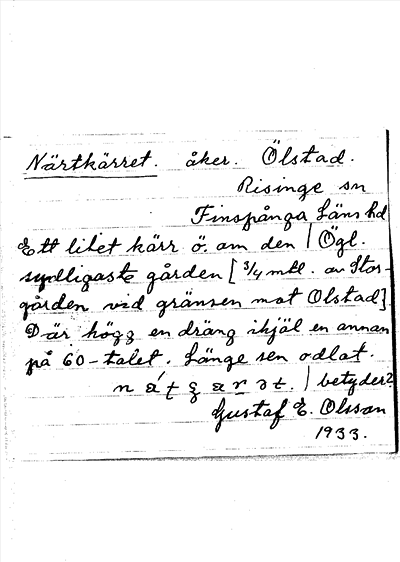 Närtkärret. åker. Ölstad.
Risinge sn
Finspånga Läns hd
Ett litet kärr ö. om den | Ögl.
sydligaste gården [3/4 mtl. av Stor-
gården vid gränsen mot Olstad]
Där högg en dräng ihjäl en annan
på 60-talet. Länge sen odlat.
| betyder?
Gustaf E. Olsson
1933.